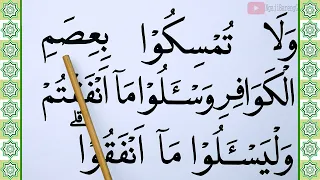 وَلَا تُمْسِكُوْا بِعِصَمِ
الْكَوَافِرِ وَسْـَٔلُوْا مَآ اَنْفَقْتُمْ
وَلْيَسْـَٔلُوْا مَآ اَنْفَقُوْا ۗ